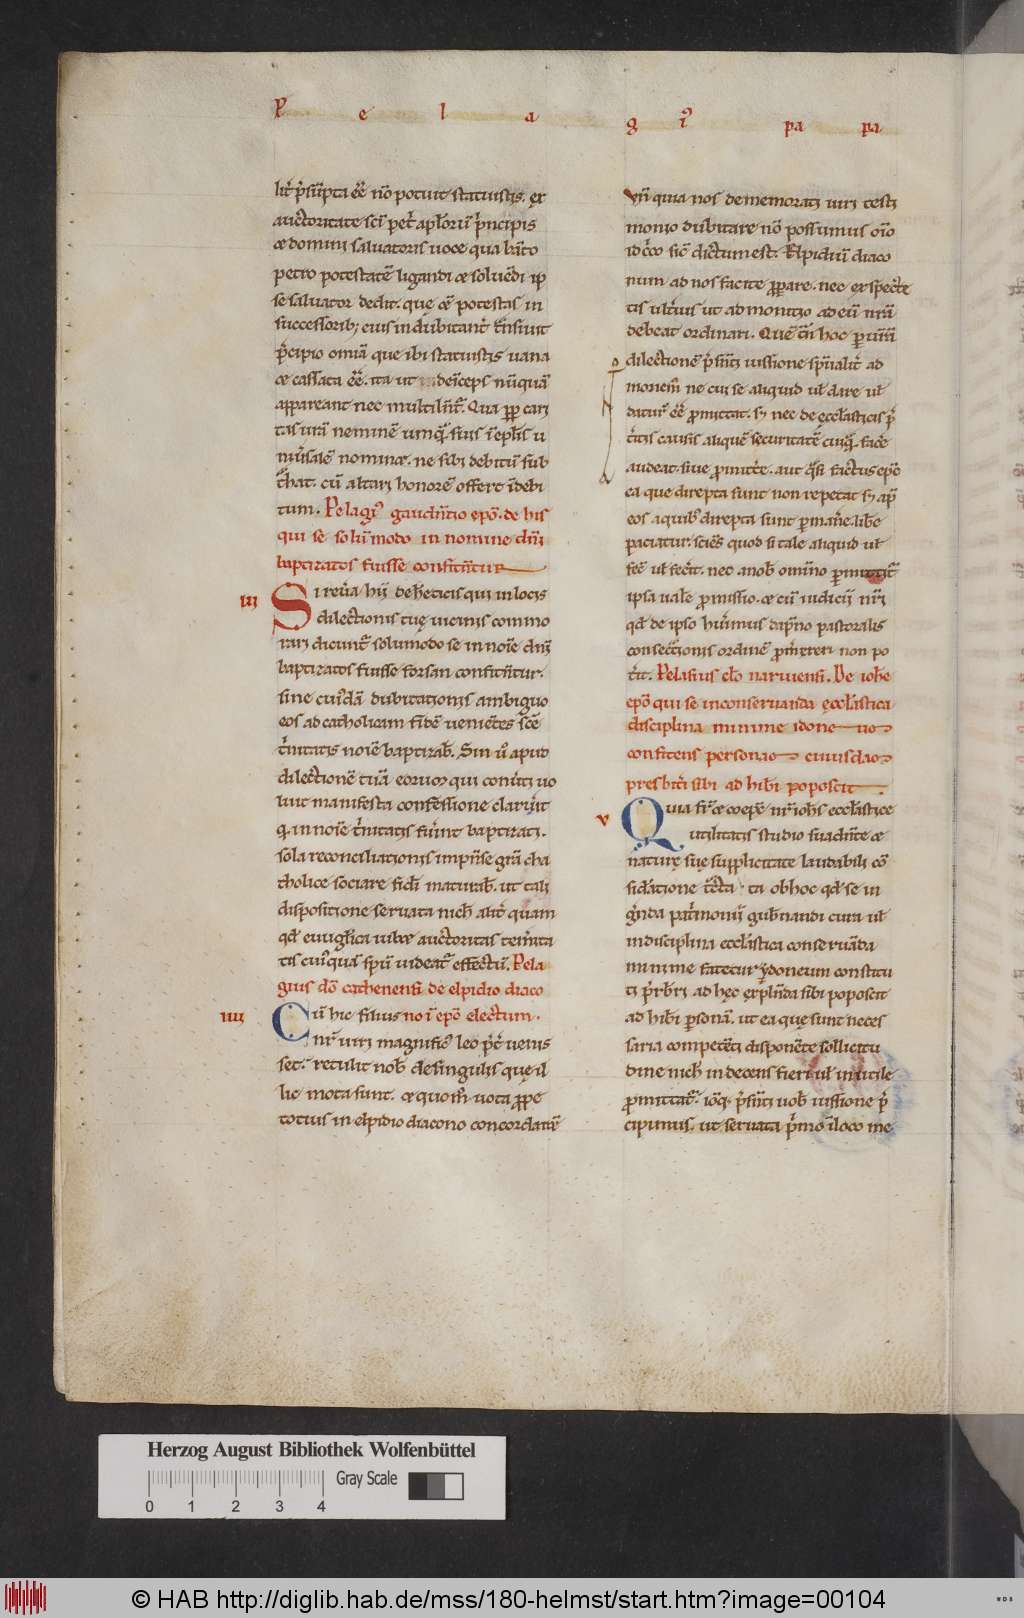 P e l a g i᷒ pa pa
lit̾ p̃sũpta eẽ nõ potuit statuistis. ex
auctoritate sc̃i pet̃ apl̃orũ p̃ncipis
& domini saluatoris uoce qua bãto
petro potestatẽ ligandi & soluẽdi ip
se saluator dedit. quę & potestas in
successorib; eius indubitant̃ t̃nsiuit
p̃cipio omĩa que ibi statuistis uana
& cassata eẽ. ita ut deĩceps nũquã
appareant nec
tas urã neminẽ umq̃
uersalẽ nomin&. ne sibi debitũ sub
t̃hat. cũ altari honorẽ offert ĩdebi
tum. Pelagi᷒ gaudẽtio ep̃o. de his
qui se solũmodo in nomine dñi
baptizatos fuisse confitẽtur
iii Si reuera hii de hẽticis qui in locis
dilectionis tuę uicinis commo
rari dicunt̃ solumodo se in noĩe dñi
baptizatos fuisse forsan confitẽtur.
sine cui᷒dã dubitationis ambiguo
eos ad catholicam fidẽ ueniẽtes scẽ
t̃nitatis noĩe baptizab̃. Sin ũ apud
dilectionẽ tuã eorum qui
manifesta confessione claru̾it
q. in noĩe t̃nitatis fu̾int baptizati.
sola reconciliationis impẽse grã cha
tholice sociare fidei maturab̃. ut tali
dispositione seruata nich̃ alit̾ quam
qd̃ euuglica auctoritas
tis cui᷒quã spũ uideat̃ effectũ. Pela
gius dc̃o cathenensi de elpidio diaco
iiii Cũ hic filius no ĩ epõ electum.
nr̃ uir magnific᷒ leo
set. retulit nob̃ de singulis que il
lic mota sunt. & quom̃ uota p̱pe
totius in elpidio diacono concordauẽ
Vñ quia nos de memorati uiri testi
monio dubitare nõ possumus oĩo
idc̃o sic̃ dictum est. Elpidiũ diaco
num ad nos facite p̱perare. nec expecte
tis ulteri᷒ ut admonitio ad eũ nrã
debeat ordinari. Quẽ tñ hoc p̱ urãm
dilectionẽ p̃senti iussione spũalit̾ ad
monem᷒ ne cui se aliquid ul̃ dare ul̃
datur̃ eẽ p̱mittat. s; nec de ęcclasticis p̃
causis aliquẽ securitatẽ facẽ
audeat. siue p̱mittẽ. aut q̃si factus ep̃c
ea que direpta sunt non repetat s; ap̃
eos a quib᷒ direpta sunt p̱manẽ. libẽ
paciatur. sciẽs quod si tale aliquid ul̃
fec̃ ul̃ fec̃it. nec a nob̃ omĩno p̱mittit̃
ipsa uale p̱missio. & cũ iudicii nr̃i
qd̃ de ipso hũimus dãpno pastoralis
consecrationis ordinẽ p̱mereri non po
t̃it. Pelasius elc̃o naruiensi. De ioh̃e
epõ qui se in conseruanda ęcclastica
disciplina minime idone uo
confitens personao cuiusdao
presbit̃i sibi ad hib̃i poposcit
v Quia fr̃ & coepc̃ nr̃ ioh̃s ecclasticę
utilitatis studio suadẽte &
naturę suę supplicitate laudabili cõ
sidatione tẽta ta ob hoc qd̃ se in
g̾nda pat̃monii gub̃nandi cura ul̃
in disciplina eccl̃astica conseruãda
minime fatetur ydoneum constitu
ti p̃rbr̃i ad hęc exp̃lẽda sibi poposcit
ad hib̃i p̱sonã. ut ea quę sunt neces
saria competẽti disponẽte sollicitu
dine nich̃ indecens fieri ul̃ inutile
p̱mittat̃. iõq; p̃senti uob̃ iussione p̃
cipimus. ut seruata p̃mo ĩ loco me
Herzog August Bibliothek Wolfenbüttel
Gray Scale
0 1 2 3 4
© HAB http://diglib.hab.de/mss/180-helmst/start.htm?image=00104